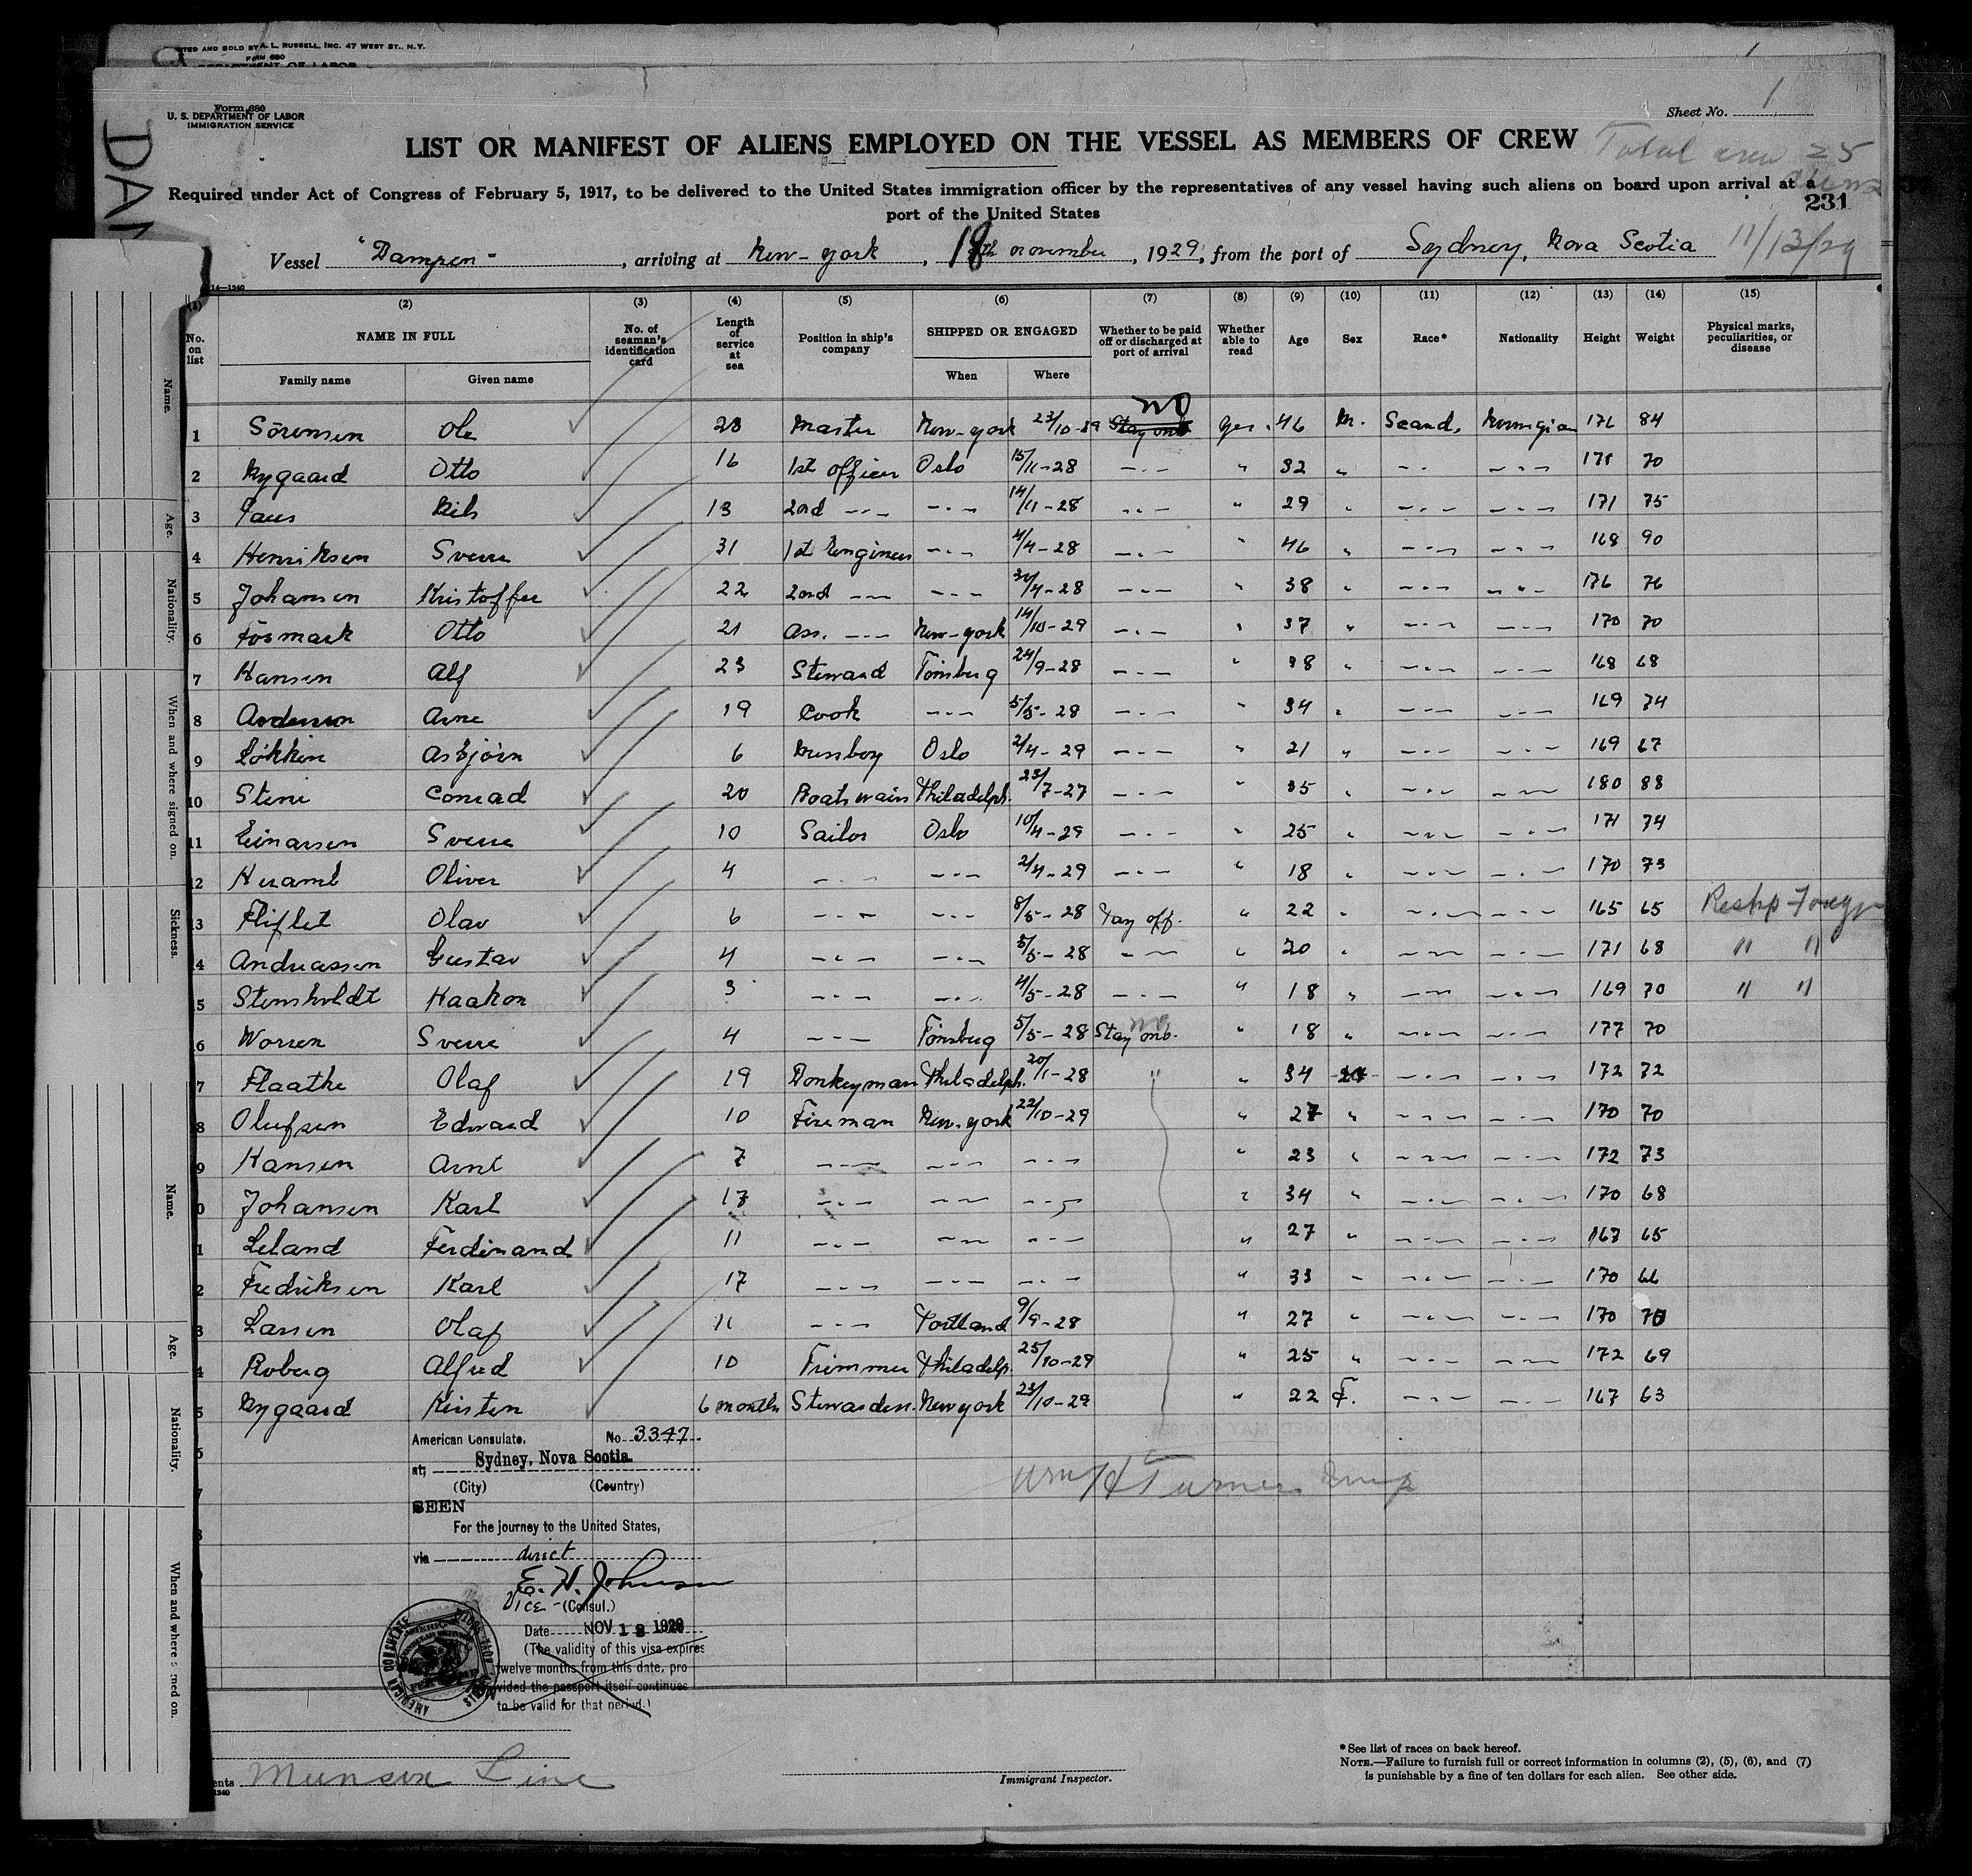 PRINTED AND SOLD BY A. L. RUSSELL, INC. 47 WEST ST., N.Y.
FORM 680
DEPARTMENT OF LABOR
Form 680
U. S. DEPARTMENT OF LABOR
IMMIGRATION SERVICE
DAM
Sheet No. 1
LIST OR MANIFEST OF ALIENS EMPLOYED ON THE VESSEL AS MEMBERS OF CREW
Total crew 25
aliens
Required under Act of Congress of February 5, 1917, to be delivered to the United States immigration officer by the representatives of any vessel having such aliens on board upon arrival at a
port of the United States
231
Vessel "Dampen", arriving at New-York, 18th november, 1929, from the port of Sydney, Nova Scotia 11/13/29
14—1240
(1) (2) (3) (4) (5) (6) (7) (8) (9) (10) (11) (12) (13) (14) (15)
No. on list NAME IN FULL Family name Given name No. of seaman's identification card Length of service at sea Position in ship's company SHIPPED OR ENGAGED When Where Whether to be paid off or discharged at port of arrival Whether able to read Age Sex Race* Nationality Height Weight Physical marks, peculiarities, or disease
no
1 Sörensen Ole 28 Master New-York 23/10-29 Stay onb yes 46 M. Scand. Norwegian 176 84
2 Nygaard Otto 16 1st officer Oslo 15/11-28 -.- " 32 " -.- -.- 171 70
3 Paus Nils 13 2nd --- --- 14/11-28 -.- " 29 " --- --- 171 75
4 Henriksen Sverre 31 1st Engineer --- 4/4-28 --- " 46 " --- --- 168 90
5 Johansen Kristoffer 22 2nd --- --- 30/4-28 --- " 38 " --- --- 176 76
6 Fosmark Otto 21 Ass. --- New-York 14/10-29 --- " 37 " --- --- 170 70
7 Hansen Alf 23 Steward Tönsberg 24/9-28 --- " 38 " --- --- 168 68
8 Andersen Arne 19 Cook --- 5/5-28 --- " 34 " --- --- 169 74
9 Lökken Asbjörn 6 Messboy Oslo 2/4-29 --- " 21 " --- --- 169 67
10 Stene Conrad 20 Boatswain Philadelph. 23/7-27 --- " 35 " --- --- 180 88
11 Einarsen Sverre 10 Sailor Oslo 10/4-29 --- " 25 " --- --- 171 74
12 Heramb Oliver 4 --- --- 2/4-29 --- " 18 " --- --- 170 73
13 Fliflet Olav 6 --- --- 8/5-28 Pay off. " 22 " --- --- 165 65 Reship Foreign
14 Andreassen Gustav 4 --- --- 5/5-28 --- " 20 " --- --- 171 68 " "
15 Stensholdt Haakon 3 --- --- 4/5-28 --- " 18 " --- --- 169 70 " "
no
16 Worren Sverre 4 --- Tönsberg 5/5-28 Stay onb. " 18 " --- --- 177 70
17 Flaathe Olaf 19 Donkeyman Philadelph. 20/1-28 " " 34 --- --- 172 72
18 Olufsen Edward 10 Fireman New-York 22/10-29 " 27 " --- --- 170 70
19 Hansen Arnt 7 --- --- --- " 23 " --- --- 172 73
20 Johansen Karl 17 --- --- --- " 34 " --- --- 170 68
21 Leland Ferdinand 11 --- --- --- " 27 " --- --- 167 65
22 Fredriksen Karl 17 --- --- --- " 33 " --- --- 170 66
23 Larsen Olaf 11 --- Portland 9/9-28 " 27 " --- --- 170 70
24 Roberg Alfred 10 Trimmer Philadelp. 25/10-29 " 25 " --- --- 172 69
25 Nygaard Kirsten 6 months Stewardess. New York 23/10-29 " 22 F. --- --- 167 63
American Consulate, No. 3347
at; Sydney, Nova Scotia.
(City) (Country)
SEEN
For the journey to the United States,
via direct
E. H. Johnson
Vice-(Consul.)
Date NOV 13 1929
(The validity of this visa expires
twelve months from this date, pro
vided the passport itself continues
to be valid for that period.)
AMERICAN CONSULATE
Turner
Munson Line
Immigrant Inspector.
*See list of races on back hereof.
NOTE.—Failure to furnish full or correct information in columns (2), (5), (6), and (7)
is punishable by a fine of ten dollars for each alien. See other side.
Name.
Age.
Nationality.
When and where signed on.
Sickness.
Name.
Age.
Nationality.
When and where signed on.